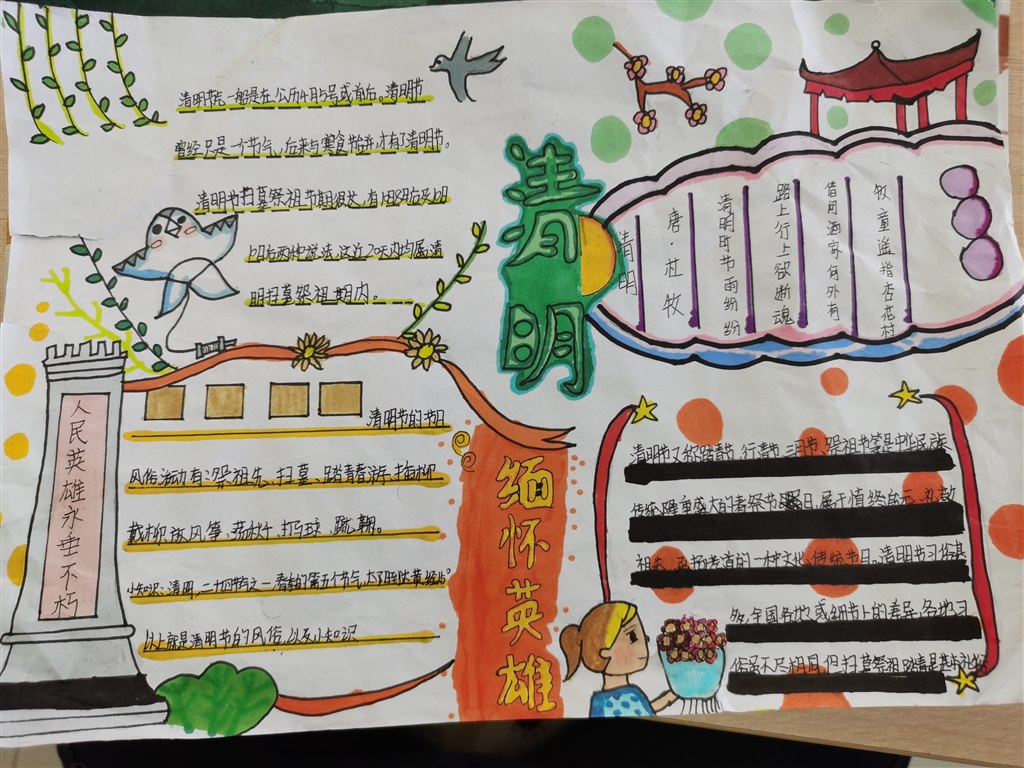 清明节一般是在公历4月5号或前后。清明节
曾经只是一个节气，后来与寒食节合并才有了清明节。
清明节扫墓祭祖节期很长，有10日前8日后及10日前
10日后两种说法，这近20天内均属清
明扫墓祭祖期内。
清明
清明
唐·杜牧
清明时节雨纷纷
路上行上欲断魂
借问酒家何外有
牧童遥指杏花村
人民英雄永垂不朽
清明节的节日
风俗活动有：祭祖先、扫墓、踏青春游、插柳
戴柳放风筝、荡秋千、打马球、蹴鞠。
小知识：清明，二十四节气之一，春季的第五个节气，太阳到达黄经15°
以上就是清明节的风俗，以及小知识
缅怀英雄
清明节又称踏青节、行清节、三月节、祭祖节等是中华民族
传统隆重盛大的春祭节日，属于慎终追远、礼敬
祖先、孝道的一种文化传统节日。清明节习俗甚
多，全国各地或细节上的差异，各地习
俗虽不尽相同，但扫墓祭祖、踏青是基本礼俗